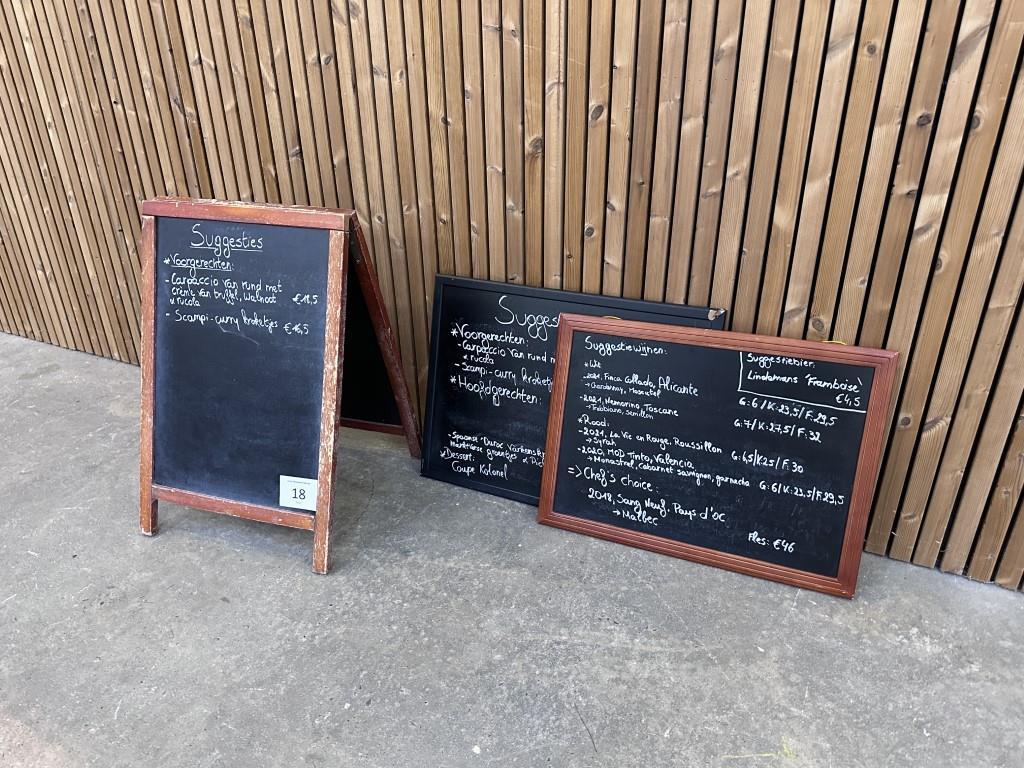 Suggesties
*Voorgerechten:
- Carpaccio van rund met
crème van truffel, walnoot
& rucola €18,5
- Scampi-curry kroketjes €16,5
18
Sugges
*Voorgerechten:
- Carpaccio van rund m
& rucola
- Scampi-curry kroketj
*Hoofdgerechten:
- Spaanse "Duroc Varkens
Marktverse groentjes &
*Dessert:
Coupe Kolonel
Suggestiewijnen:
Suggestiebier:
Lindemans "Framboise"
€4,5
*Wit
- 2021, Finca Collado, Alicante G: 6/K: 23,5/F: 29,5
→ Chardonnay, Moscatel
- 2021, Nemorino Toscane G: 7/K: 27,5/F: 32
→ Trebbiano, Semillon
*Rood:
- 2021, La Vie en Rouge, Roussillon G: 6,5/K: 25/F: 30
→ Syrah
- 2020, MOD Tinto, Valencia G: 6/K: 23,5/F: 29,5
→ Monastrel, cabernet sauvignon, garnacha
=> Chef's choice:
2018, Sang Neuf, Pays d'oc
→ Malbec Fles: €46